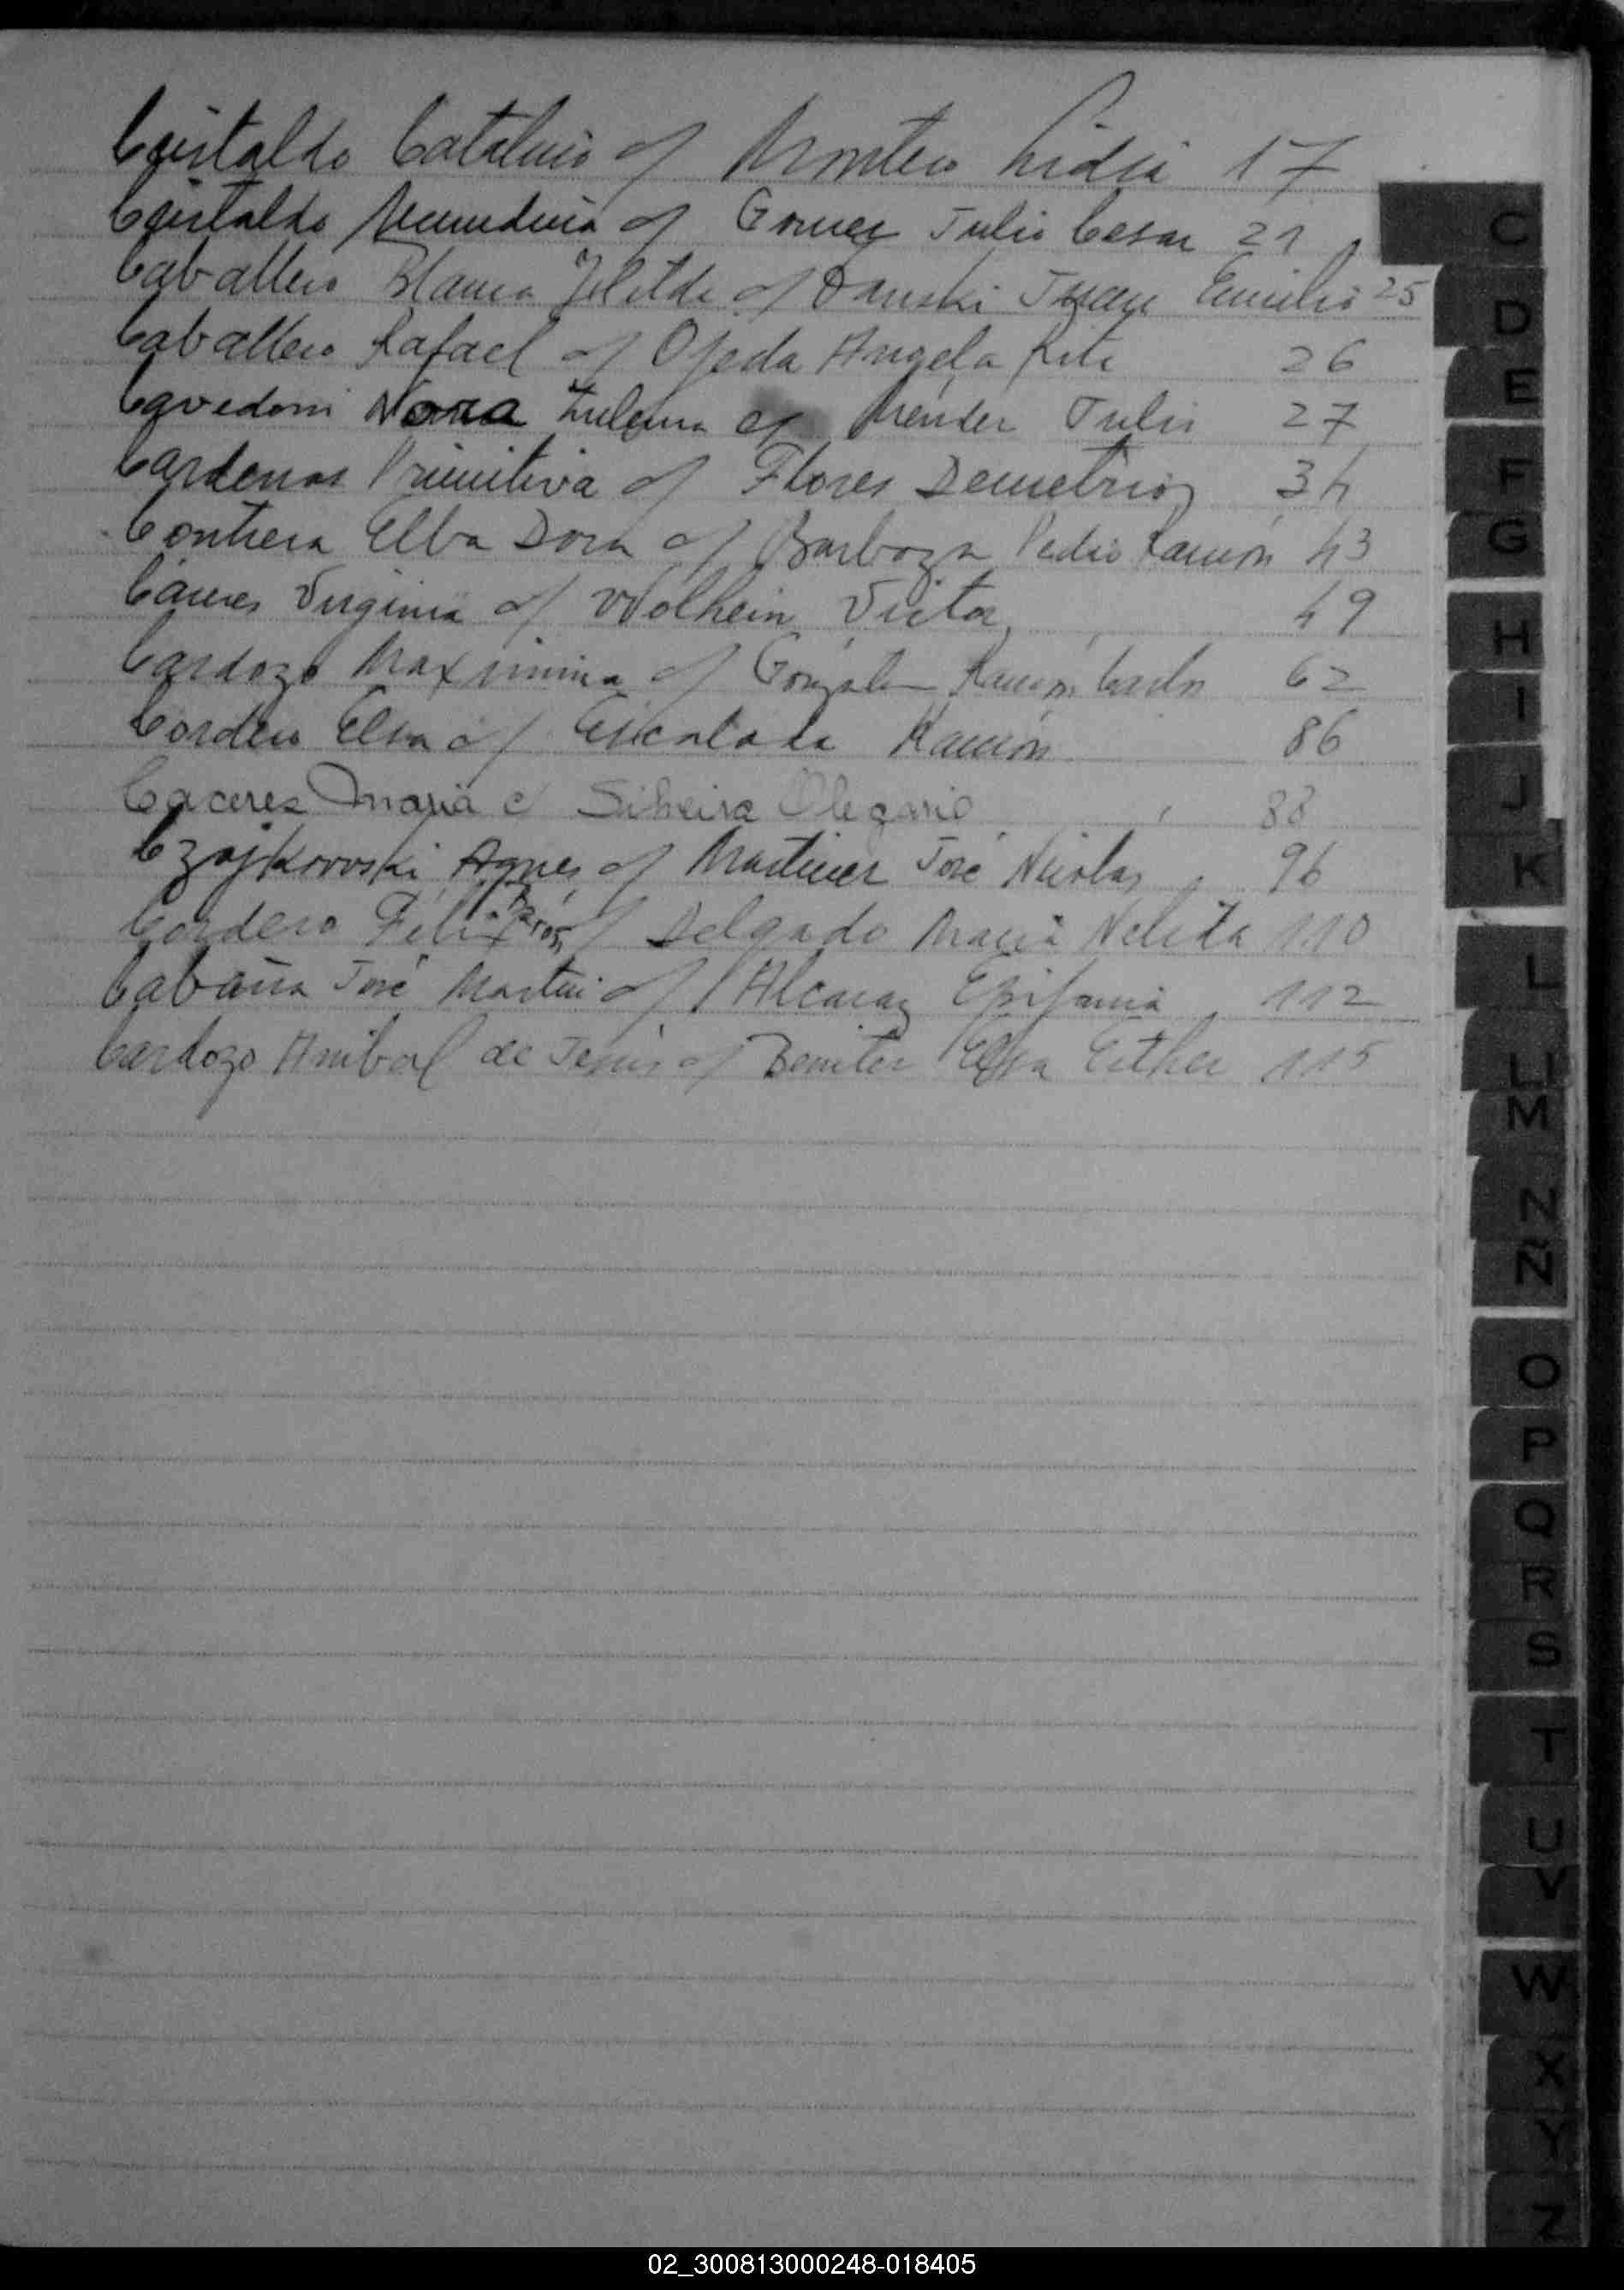 Cristaldo Catalino c/ Montero Lidia 17
Cristaldo c/ Gomez Julio Cesar 21
Caballero Blanca Ilda c/ Danski Juan Emilio 25
Caballero Rafael c/ Ojeda Angela Rita 26
Cavedoni Nora Zulema c/ Méndez Julio 27
Cardenas Primitiva c/ Flores Demetrio 34
Contrera Elba Dora c/ Barboza Pedro Ramón 43
Cáceres Virginia c/ Wolhein Victor 49
Cardozo Maximina c/ González Ramón Carlos 62
Cordero Elsa c/ Escalada Ramón 86
Caceres Maria c/ Silveira Olegario 88
Czajkowski Agnes c/ Martinez José Nicolas 96
Cordero Félix c/ Delgado Maria Nelida 110
Cabaña José Martin c/ Alcaraz Epifania 112
Cardozo Anibal de Jesús c/ Benitez Elsa Esther 115
C
D
E
F
G
H
I
J
K
L
LL
M
N
Ñ
O
P
Q
R
S
T
U
V
W
X
Y
Z
02_300813000248-018405